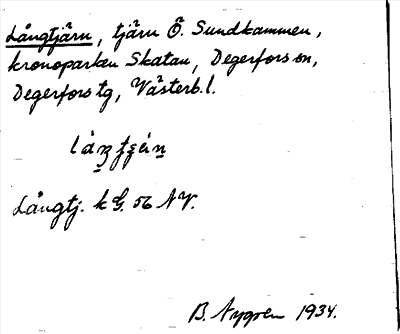 Långtjärn, tjärn Ö. Sundkammen,
kronoparken Skatan, Degerfors sn,
Degerfors tg, Västerb. l.
Långtj. k G. 56 NV.
B. Nygren 1934.